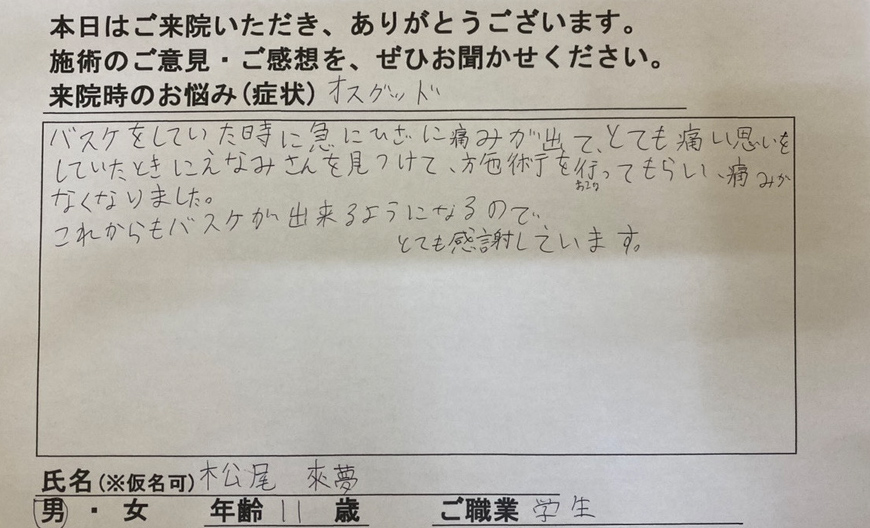 本日はご来院いただき、ありがとうございます。
施術のご意見・ご感想を、ぜひお聞かせください。
来院時のお悩み(症状) オスグッド
バスケをしていた時に急にひざに痛みが出て、とても痛い思いを
していたときにえなみさんを見つけて、施術を行ってもらい、痛みが
おこな
なくなりました。
これからもバスケが出来るようになるので、
とても感謝しています。
氏名(※仮名可) 松尾 來夢
男・女 年齢 11 歳 ご職業 学生